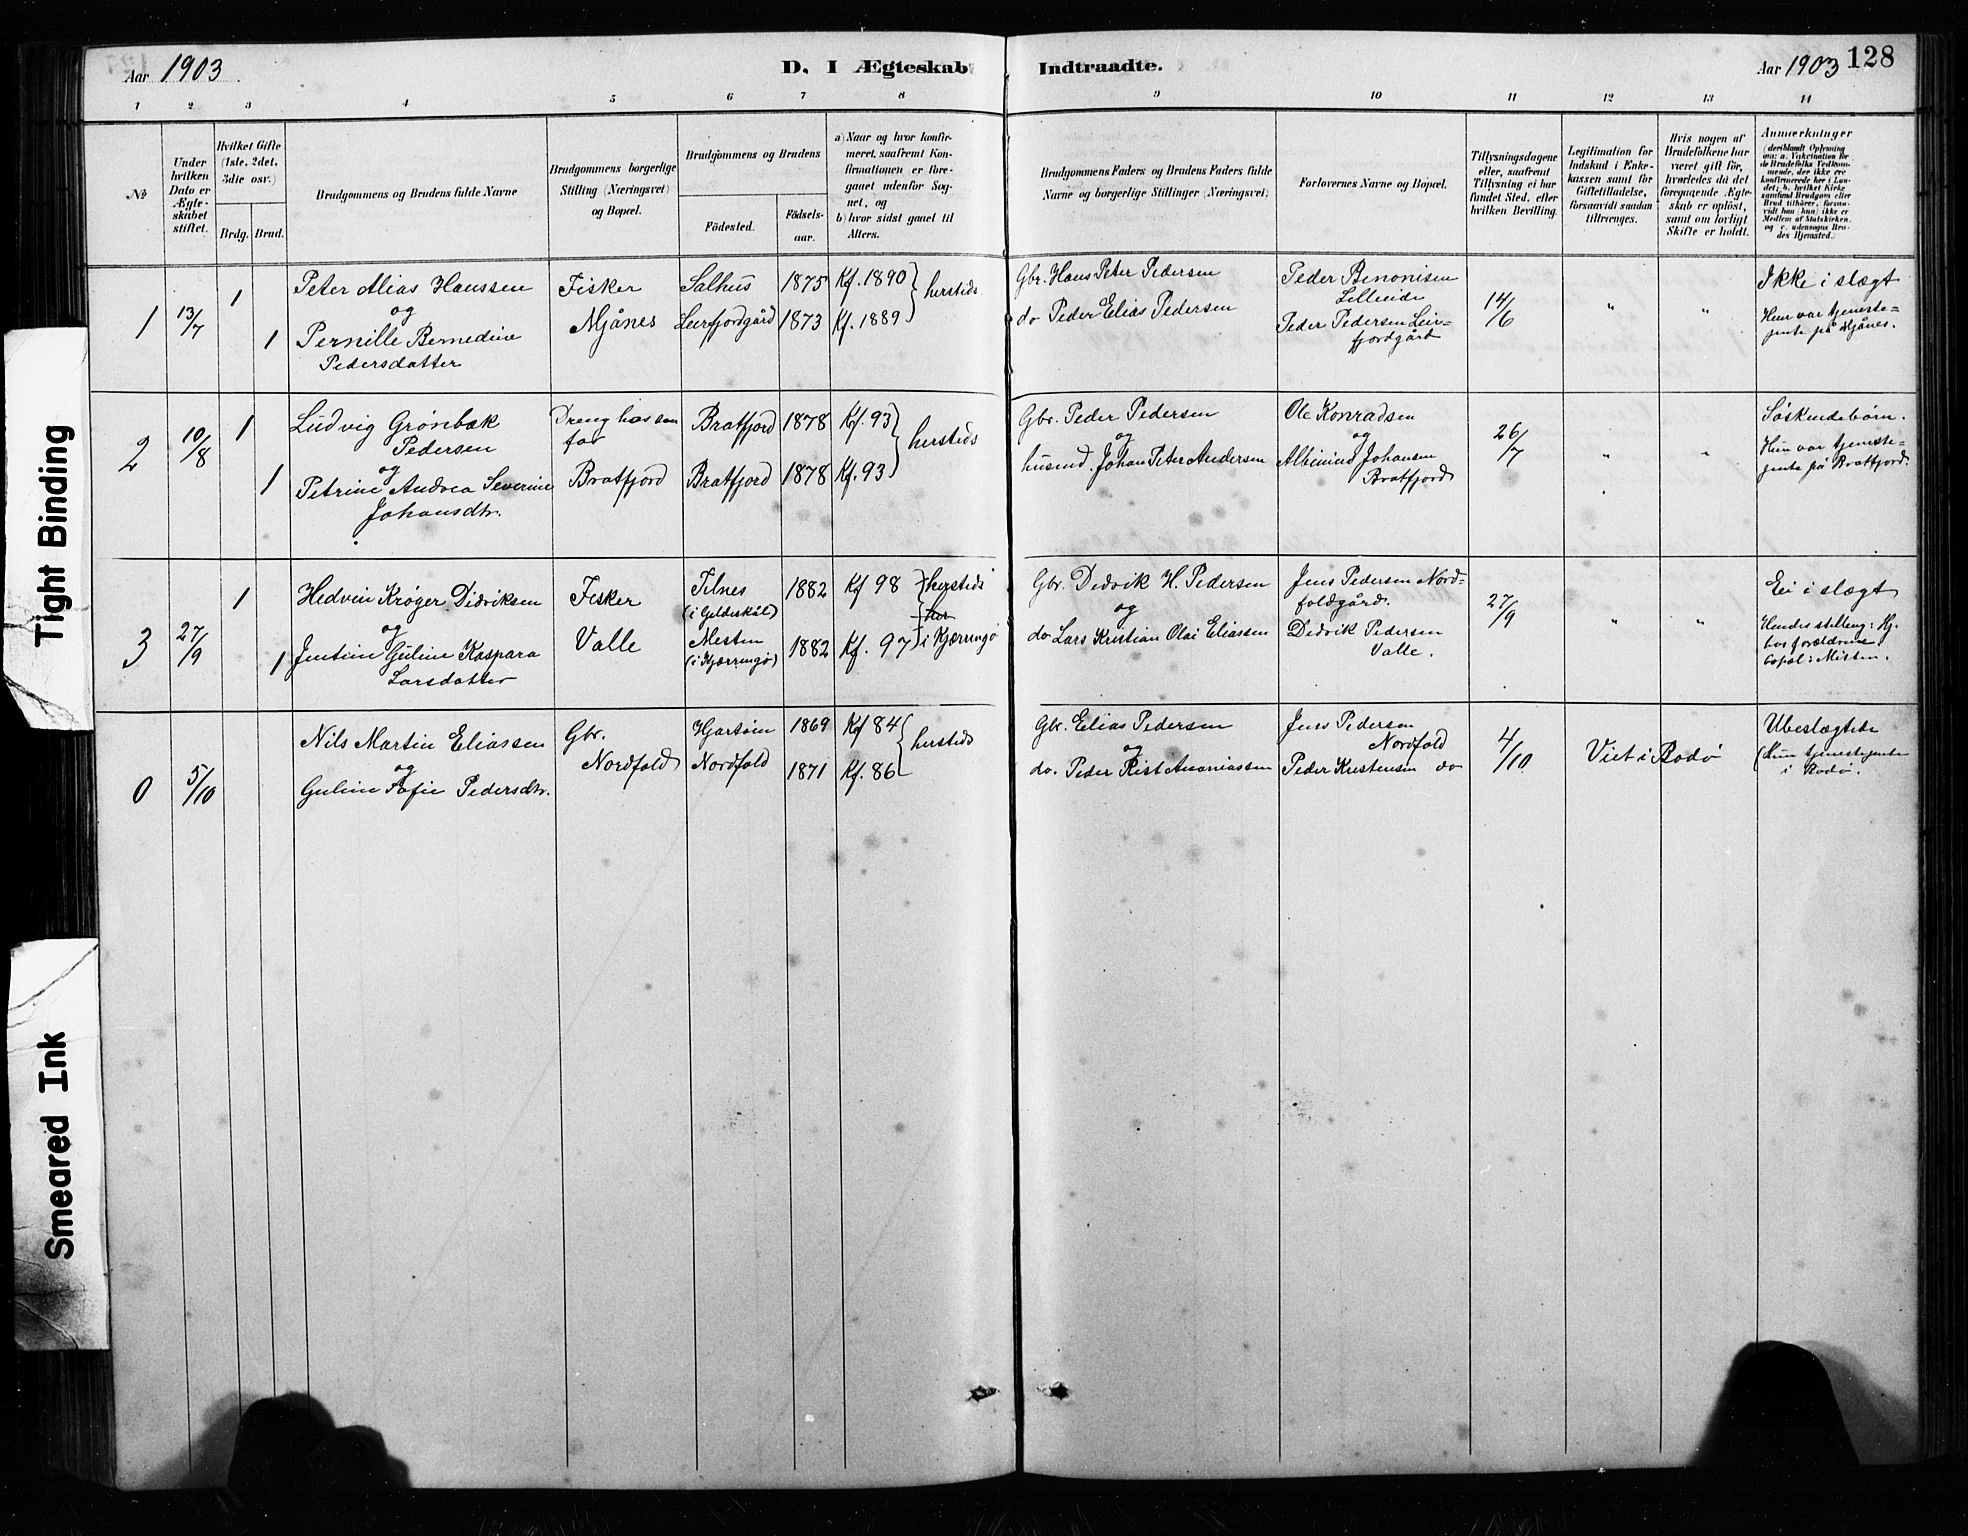 Aar 1903
D. I Ægteskab
Indtraadte.
Aar 1903
128
1 2 3 4 5 6 7 8 9 10 11 12 13 14
No
Under
hvilken
Dato er
Ægte-
skabet
stiftet.
Hvilket Gifte
(1ste, 2det,
3die osv.)
Brdg. Brud.
Brudgommens og Brudens fulde Navne
Brudgommens borgerlige
Stilling (Næringsvei)
og Bopæl.
Brudgommens og Brudens
Födested.
Födsels-
aar.
a) Naar og hvor konfir-
meret, saafremt Kon-
firmationen er fore-
gaaet udenfor Sog-
net, og
b) hvor sidst gaaet til
Alters.
Brudgommens Faders og Brudens Faders fulde
Navne og borgerlige Stillinger (Næringsvei)
Forlovernes Navne og Bopæl.
Tillysningsdagene
eller, saafremt
Tillysning ei har
fundet Sted, efter
hvilken Bevilling.
Legitimation for
Indskud i Enke-
kassen samt for
Giftetilladelse,
forsaavidt saadan
tiltrænges.
Hvis nogen af
Brudefolkene har
været gift för,
hvorledes da det
foregaaende Ægte-
skab er oplöst,
samt om lovligt
Skifte er holdt.
Anmerkninger
(deriblandt Oplysning
om: a. Vakcination for
de Brudefolks Vedkom-
mende, der ikke ere
konfirmerede her i Lan-
det; b. hvilket Kirke
samfund Brudgom eller
Brud tilhörer, forsaa-
vidt han (hun) ikke er
Medlem af Statskirken,
og c. udensogns Bru-
des Hjemsted.)
1
13/7
1
1
Peter Alias Hanssen
og
Pernille Bernedine
Pedersdatter
Fisker
Mjånes
Salhus
Leirfjordgård
1875
1873
Kf. 1890
Kf. 1889
herstids
Gbr. Hans Peter Pedersen
do Peder Elias Pedersen
Peder Benonisen
Lilleeide
Peder Pedersen Leir=
fjordgård
14/6
"
"
Ikke i slægt
Hun var tjeneste=
jente på Mjånes.
2
10/8
1
1
Ludvig Grønbæk
Pedersen
og
Petrine Andrea Severine
Johansdtr.
Dreng hos sin
far
Bratfjord
Bratfjord
Bratfjord
1878
1878
Kf. 93
Kf. 93
herstids
Gbr. Peder Pedersen
og
husmd. Johan Peter Andersen
Ole Konradsen
og
Albinius Johansen
Bratfjord
26/7
"
"
Søskendebørn.
Hun var tjeneste=
jente på Bratfjord.
3
27/9
1
1
Hedvin Krøger Didriksen
og
Jentine Guline Kaspara
Larsdatter
Fisker
Valle
Filnes
(i Gildeskål)
Misten
(i Kjærringø)
1882
1882
Kf 98
Kf. 97
herstids
i Kjærringø
Gbr. Didrik H. Pedersen
og
do Lars Kristian Olai Eliassen
Jens Pedersen Nord=
foldgård.
Didrik Pedersen
Valle.
27/9
"
"
Ei i slægt
Hendes stilling: Hj.
hos forældrene
Bopæl: Misten.
0
5/10
Nils Martin Eliassen
og
Guline Sofie Pedersdtr.
Gbr.
Nordfold
Hjartøen
Nordfold
1869
1871
Kf 84
Kf. 86
herstids
Gbr. Elias Pedersen
og
do. Peder Rist Ananiassen
Jens Pedersen
Nordfold
Peder Kristensen do
4/10
Viet i Bodø
Ubeslægtede
(Hun tjenestejente
i Bodø.
Tight Binding
Smeared Ink